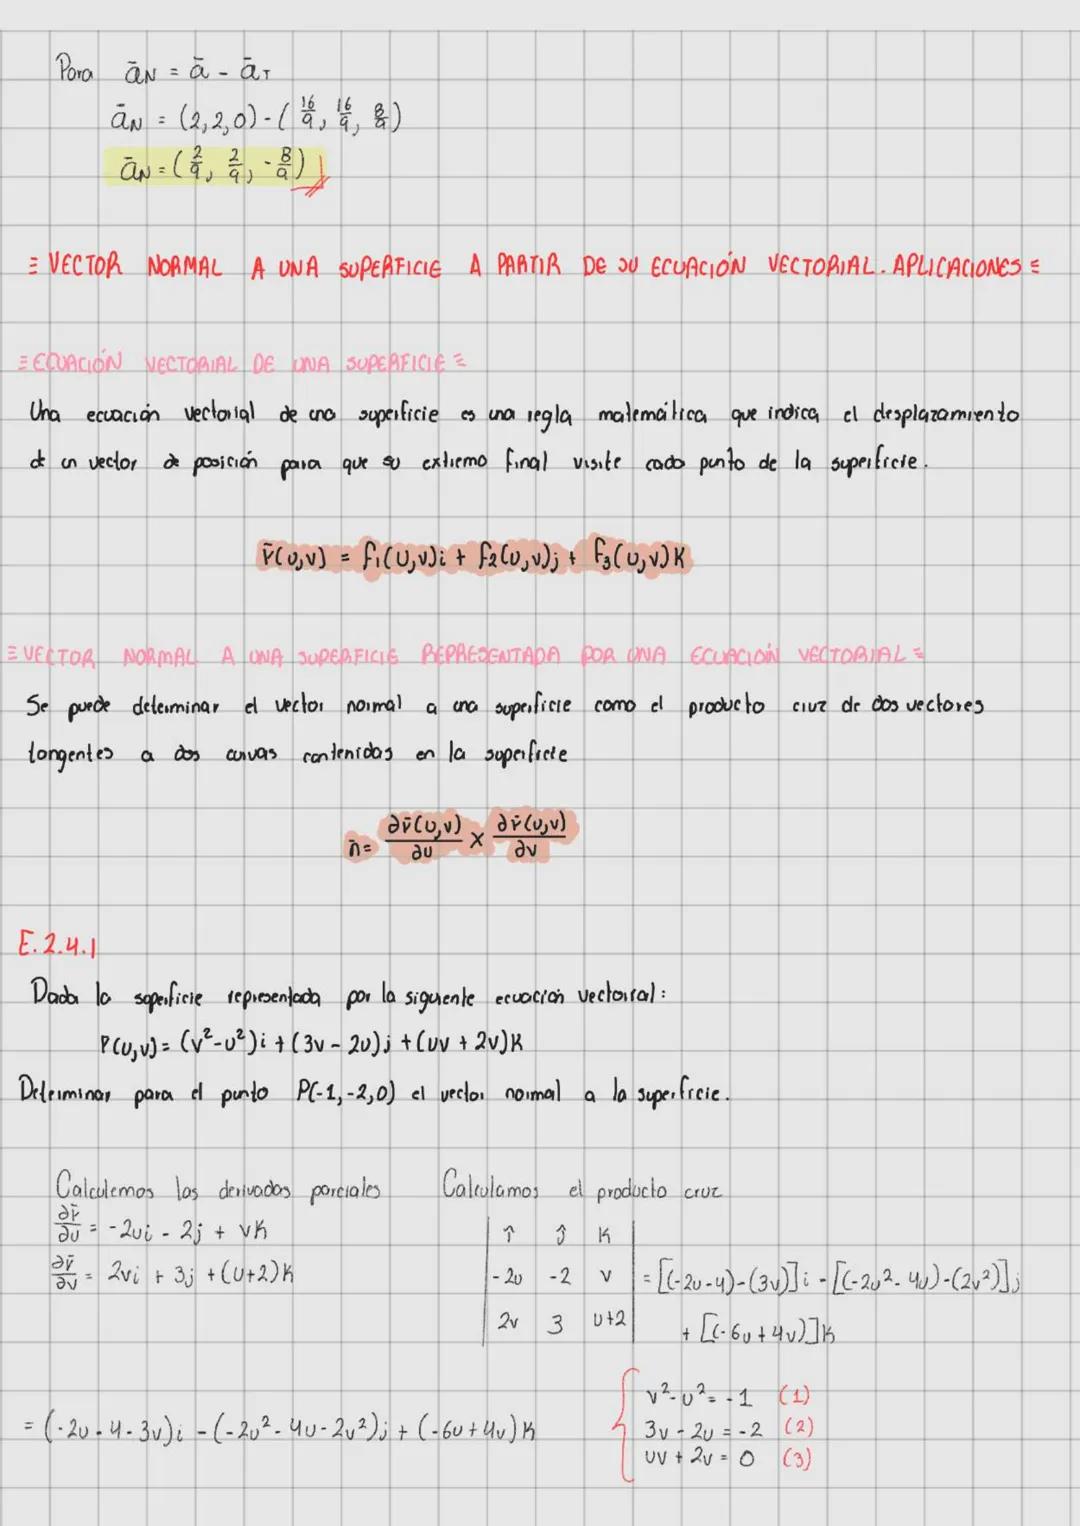 Para āN = ā - āT
āN = (2,2,0) - (16/9, 16/9, 8/9)
āN = (2/9, 2/9, -8/9)
= VECTOR NORMAL A UNA SUPERFICIE A PARTIR DE SU ECUACIÓN VECTORIAL. APLICACIONES =
= ECUACIÓN VECTORIAL DE UNA SUPERFICIE =
Una ecuación vectorial de una superficie es una regla matemática que indica el desplazamiento
de un vector de posición para que su extremo final visite cada punto de la superficie.
r̄(u,v) = f₁(u,v)i + f₂(u,v)j + f₃(u,v)K
= VECTOR NORMAL A UNA SUPERFICIE REPRESENTADA POR UNA ECUACIÓN VECTORIAL =
Se puede determinar el vector normal a una superficie como el producto cruz de dos vectores
tangentes a dos curvas contenidas en la superficie
n̄ = ∂r̄(u,v)/∂u × ∂r̄(u,v)/∂v
E.2.4.1
Dada la superficie representada por la siguiente ecuación vectorial:
r(u,v) = (v²-u²)i + (3v - 2u)j + (uv + 2v)K
Determinar para el punto P(-1,-2,0) el vector normal a la superficie.
Calculemos las derivadas parciales
∂r̄/∂u = -2ui - 2j + vK
∂r̄/∂v = 2vi + 3j + (u+2)K
Calculamos el producto cruz
î ĵ K
-2u -2 v = [(-2u-4)-(3v)]i - [(-2u²-4u)-(2v²)]j
2v 3 u+2 + [(-6u+4v)]K
= (-2u-4-3v)i - (-2u²-4u-2v²)j + (-6u+4v)K
v²-u² = -1 (1)
3v - 2u = -2 (2)
uv + 2v = 0 (3)